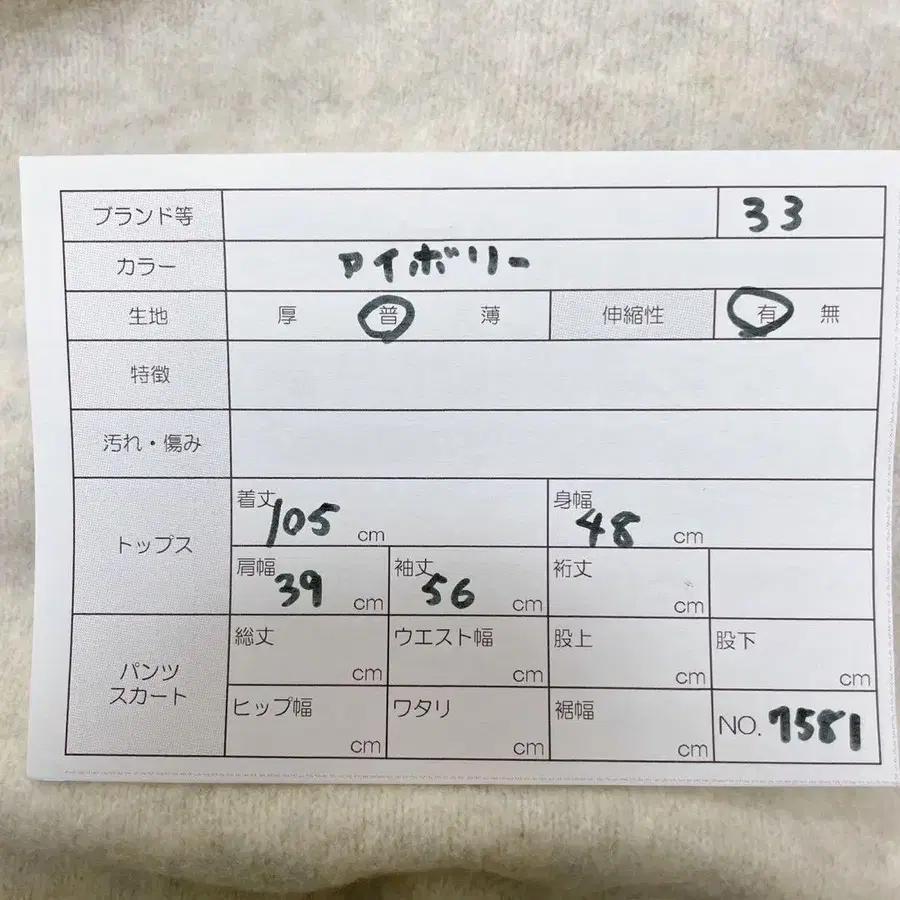 ブランド等 33
カラー アイボリー
生地 厚 普 薄 伸縮性 有 無
特徴
汚れ・傷み
トップス
着丈 105 cm 身幅 48 cm
肩幅 39 cm 袖丈 56 cm 裄丈 cm
パンツ
スカート
総丈 cm ウエスト幅 cm 股上 cm 股下 cm
ヒップ幅 cm ワタリ cm 裾幅 cm NO. 7581